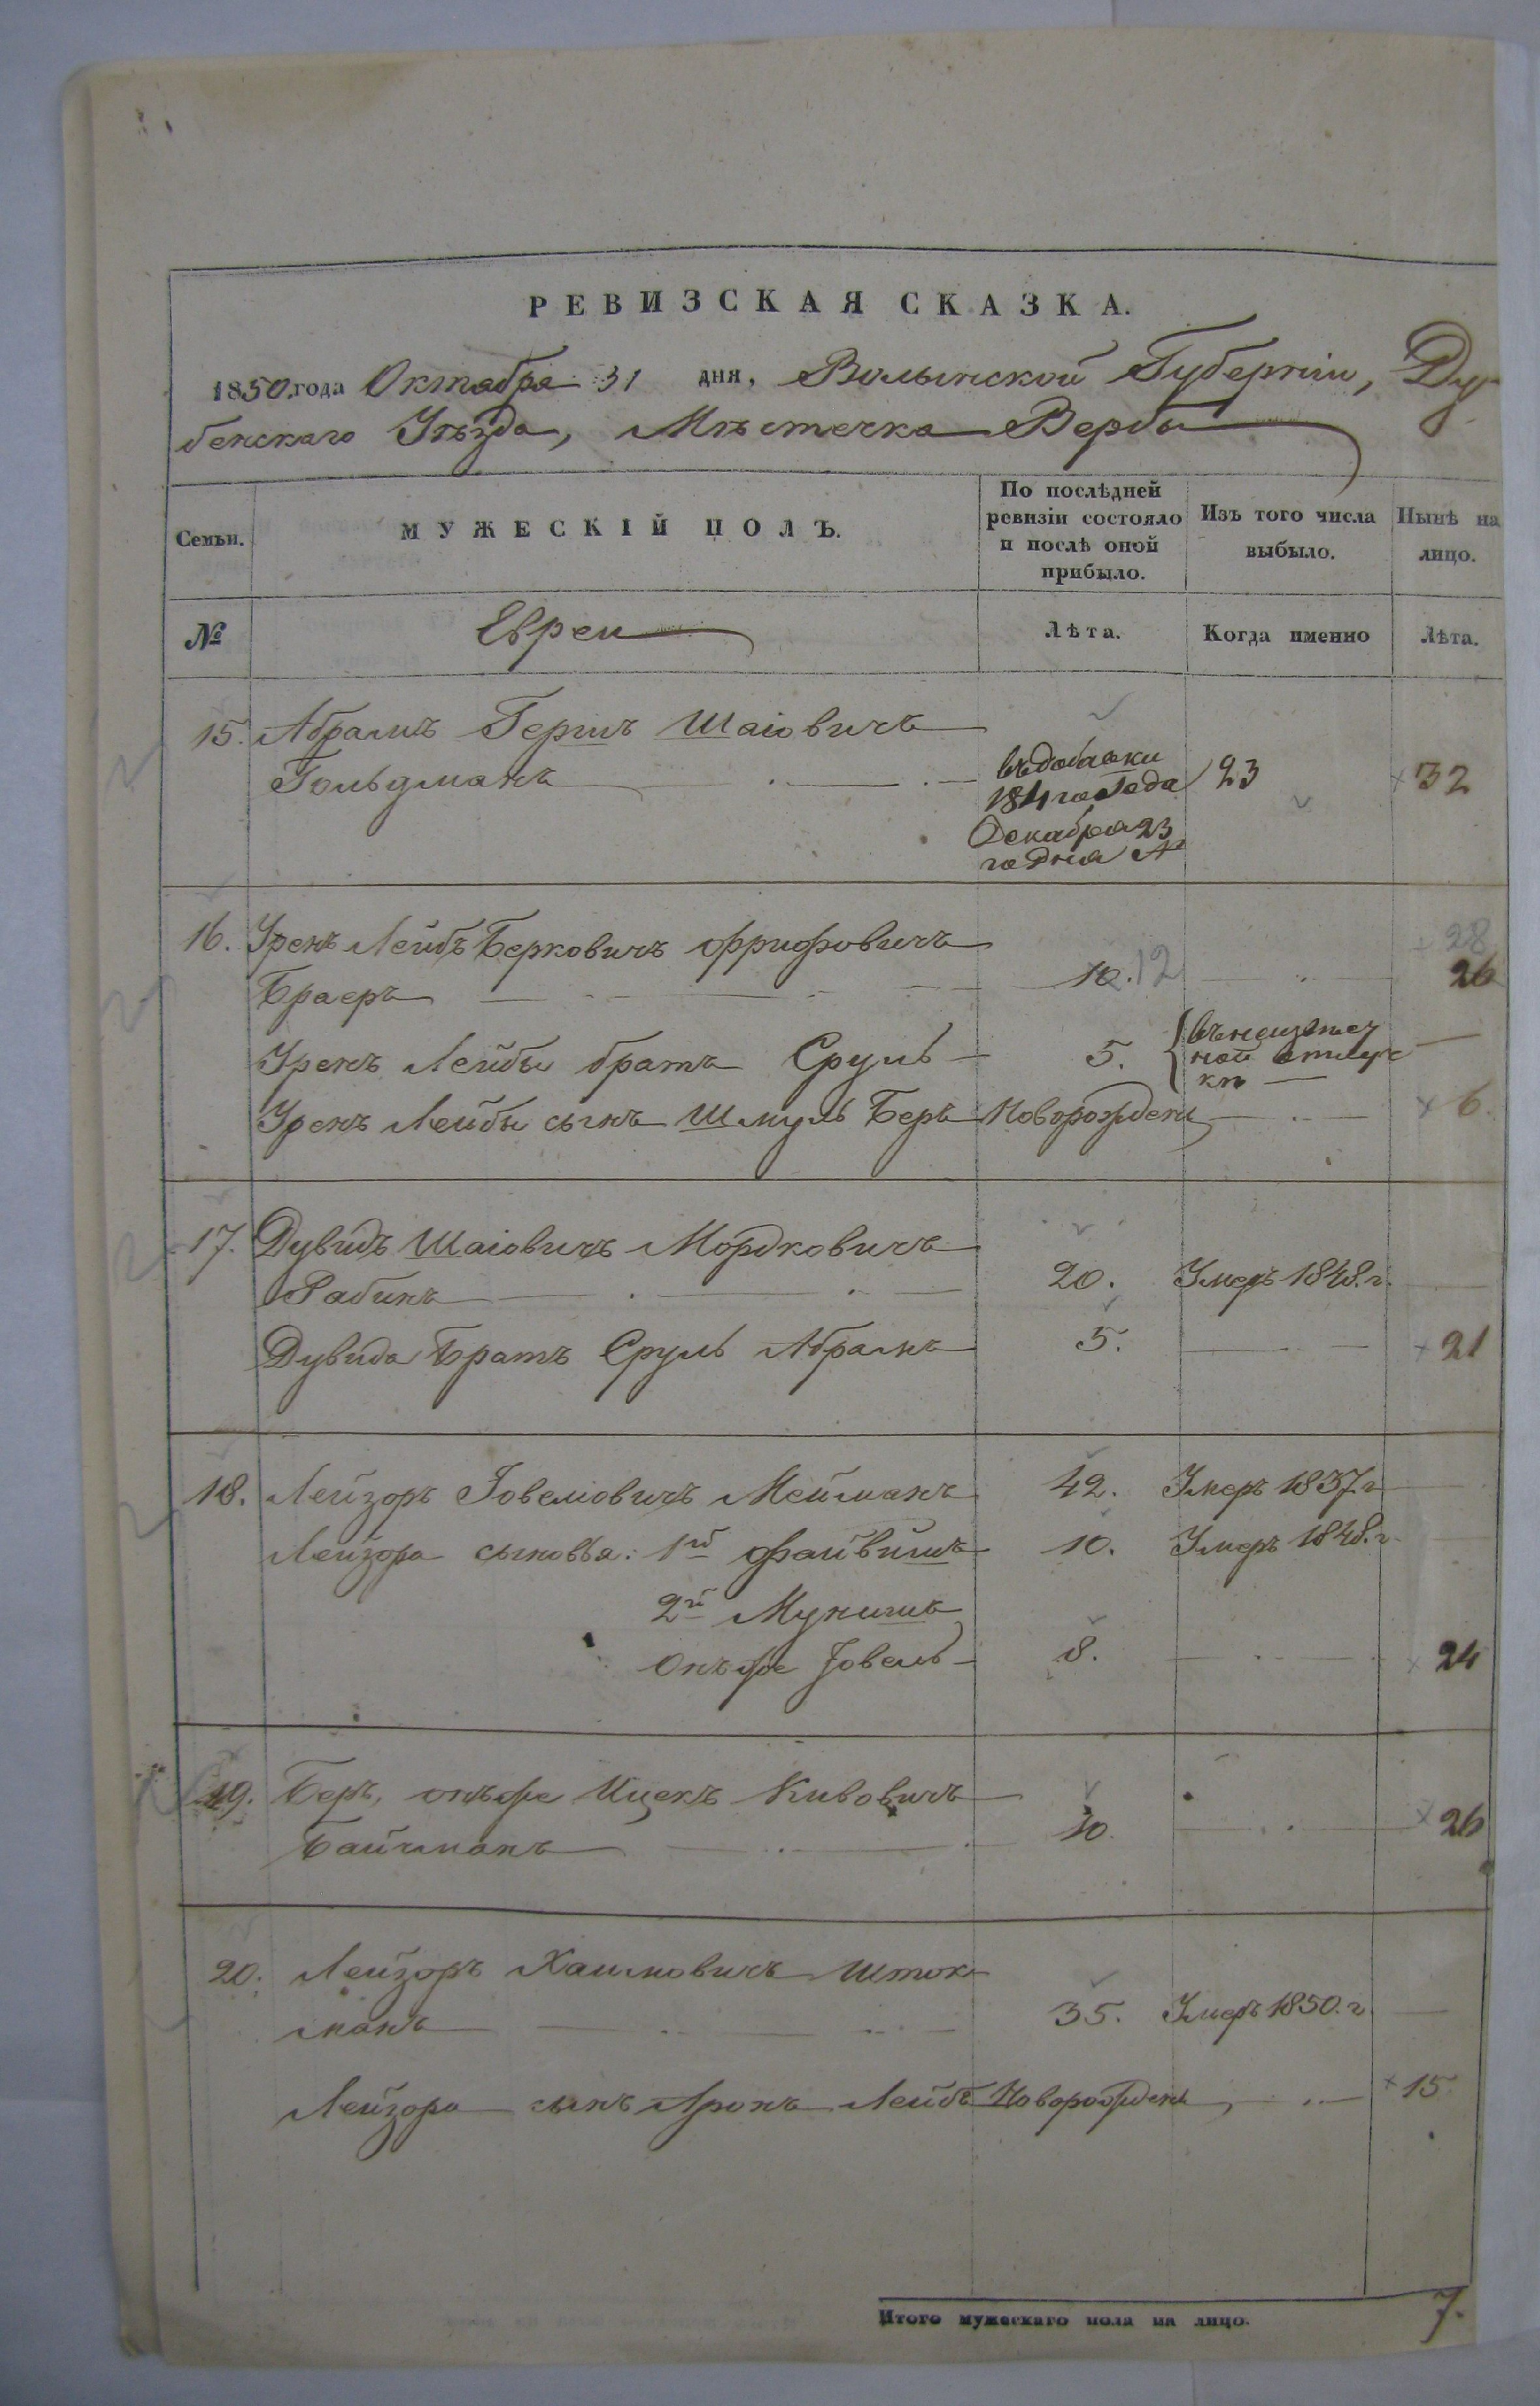 РЕВИЗСКАЯ СКАЗКА.
1850 года Октября 31 дня, Волынской Губерніи, Ду
бенскаго Уѣзда, Мѣстечка Вербы
Семьи.
МУЖЕСКІЙ ПОЛЪ.
По послѣдней
ревизіи состояло
и послѣ оной
прибыло.
Изъ того числа
выбыло.
Нынѣ на
лицо.
№
Евреи
Лѣта.
Когда именно
Лѣта.
15. Абрамъ Гершъ Шаіовичъ
Гольдманъ 23 32
Декабря 23
го дня
16. Уренъ Лейбъ Берковичъ
28
Браеръ 10. 12 26
Уренъ Лейбы братъ Сруль 5.
Уренъ Лейбы сынъ Шмуль Беръ Новорожденъ 6.
17. Дувидъ Шаіовичъ Мордковичъ
Рабинъ 20. Умеръ 1848. г.
Дувида Братъ Сруль Абрамъ 5. 21
18. Лейзоръ Іовеліовичъ Мейманъ 42. Умеръ 1837 г
Лейзора сыновья: 1й Файвишъ 10. Умеръ 1848. г.
2й Мунишъ
онъ же Іовель 8. 24
19. Беръ, онъ же Ицекъ Кивовичъ
10. 26
20. Лейзоръ Хаимовичъ Шток
манъ 35. Умеръ 1850. г.
Лейзора сынъ Аронъ Лейбъ Новорожденъ 15
Итого мужескаго пола на лицо. 7.